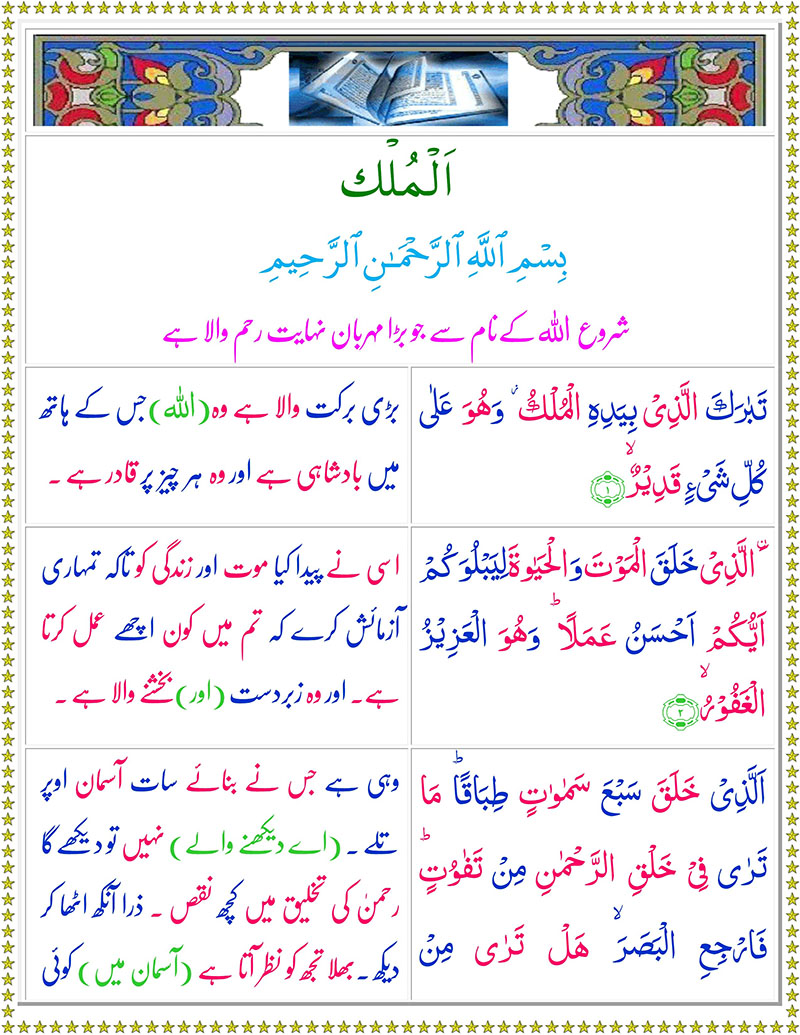 اَلْمُلْك
بِسْمِ ٱللَّهِ ٱلرَّحْمَـٰنِ ٱلرَّحِيمِ
شروع اللہ کے نام سے جو بڑا مہربان نہایت رحم والا ہے
تَبٰرَكَ الَّذِىْ بِيَدِهِ الْمُلْكُ ۘ وَهُوَ عَلٰى
كُلِّ شَىْءٍ قَدِيْرٌ ۙ ﴿۱﴾
بڑی برکت والا ہے وہ (اللہ) جس کے ہاتھ
میں بادشاہی ہے اور وہ ہر چیز پر قادر ہے ۔
ۨالَّذِىْ خَلَقَ الْمَوْتَ وَالْحَيٰوةَ لِيَبْلُوَكُمْ
اَيُّكُمْ اَحْسَنُ عَمَلًا ؕ وَهُوَ الْعَزِيْزُ
الْغَفُوْرُ ۙ ﴿۲﴾
اسی نے پیدا کیا موت اور زندگی کو تاکہ تمہاری
آزمائش کرے کہ تم میں کون اچھے عمل کرتا
ہے۔ اور وہ زبردست (اور) بخشنے والا ہے ۔
اَلَّذِىْ خَلَقَ سَبْعَ سَمٰوٰتٍ طِبَاقًا ؕ مَا
تَرٰى فِىْ خَلْقِ الرَّحْمٰنِ مِنْ تَفٰوُتٍ ؕ
فَارْجِعِ الْبَصَرَ ۙ هَلْ تَرٰى مِنْ
وہی ہے جس نے بنائے سات آسمان اوپر
تلے ۔ (اے دیکھنے والے) نہیں تو دیکھے گا
رحمنٰ کی تخلیق میں کچھ نقص ۔ ذرا آنکھ اٹھا کر
دیکھ ۔ بھلا تجھ کو نظر آتا ہے (آسمان میں) کوئی